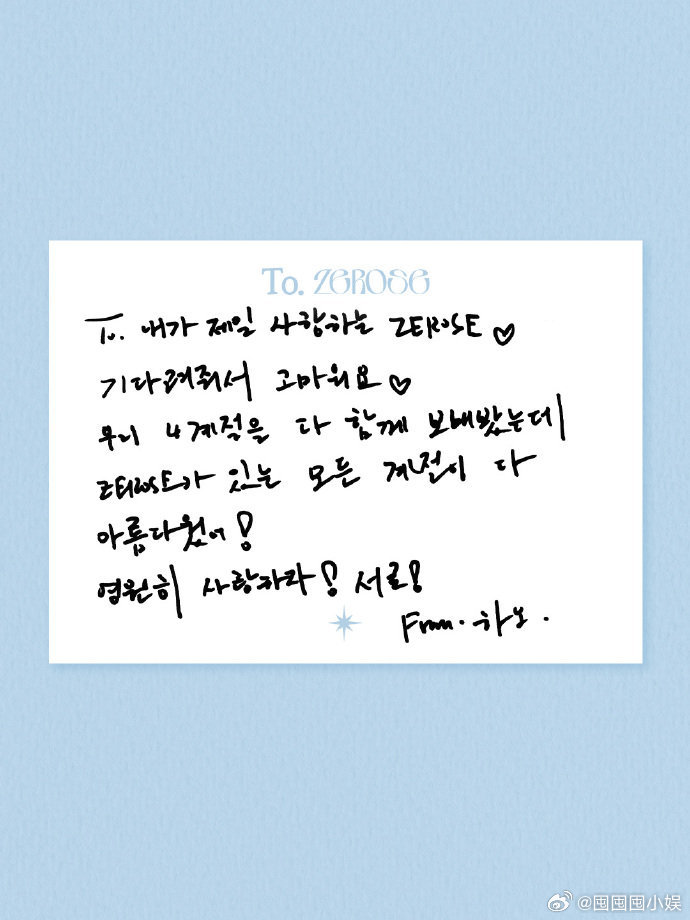 To. ZEROSE
To. 내가 제일 사랑하는 ZEROSE ♡
기다려줘서 고마워요 ♡
우리 4계절을 다 함께 보내봤는데
ZEROSE가 있는 모든 계절이 다
아름다웠어!
영원히 사랑하자! 서로!
From. 하오.
@囤囤囤小娱